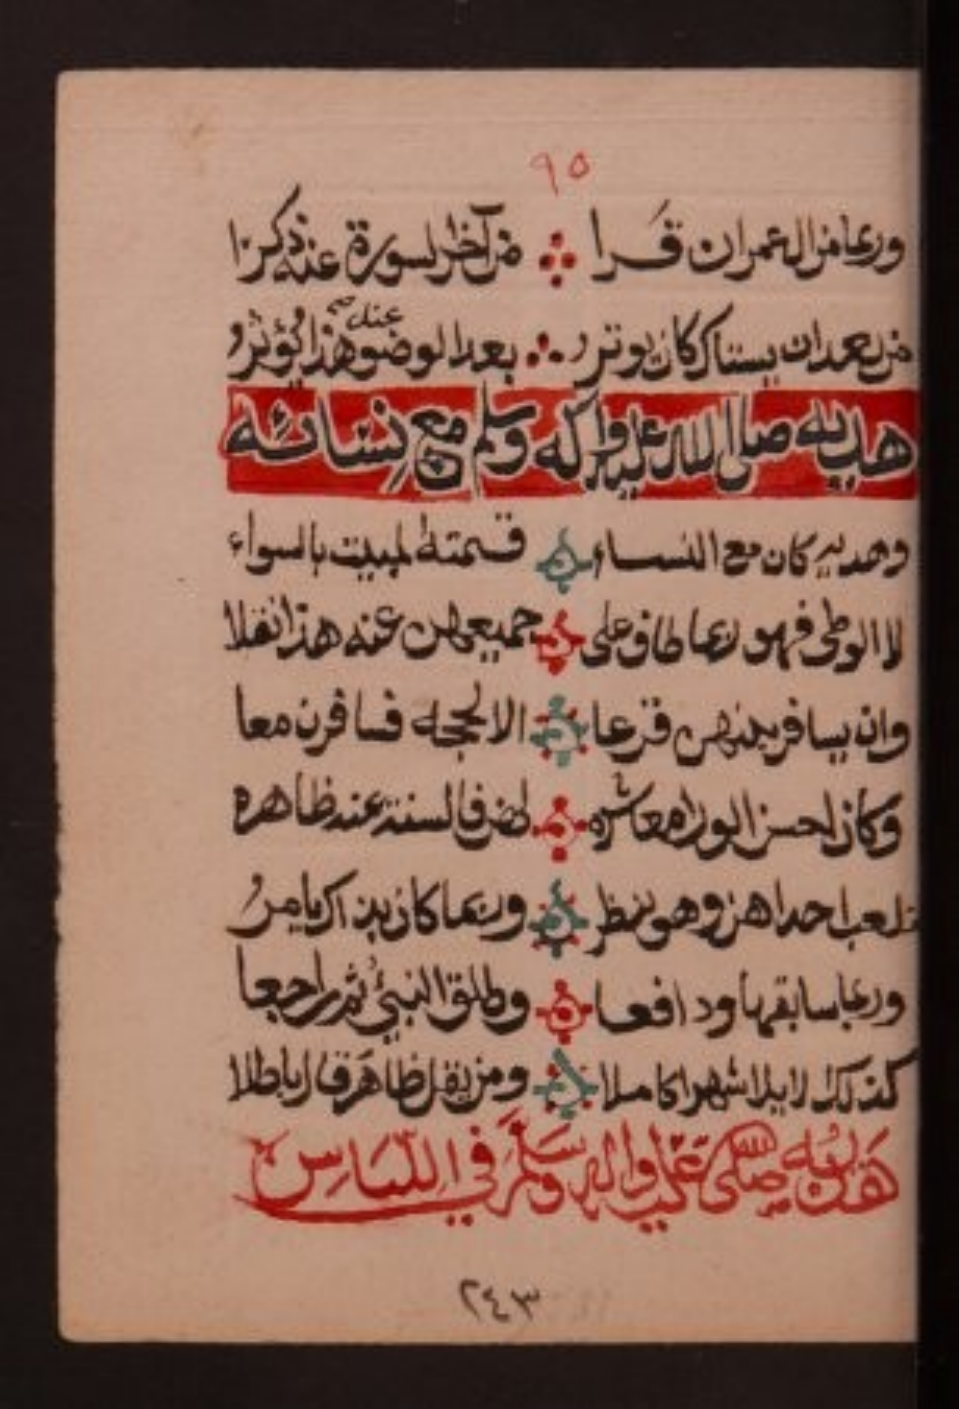 ٩٥
وربما من ال عمران قَرا من آخر السورة عنه ذكرا
من بعد ان يستاك كان يوتر بعد الوضو هذا يُؤثرُ
عنه صح
هديه صلى الله عليه واله وسلم مع نِسَائه
وهديه كان مع النساء قسمته المبيت بالسواء
لا الوطى فهو ربما طاف على جميعهن عنه هذا نقلا
وان يسافر بينهن قرعا الا لحجه فسافرن معا
وكان احسن الورى معاشره لهن فالسنة عنه ظاهره
تلعب احداهن وهو ينظر وربما كان بذاك يامرُ
وربما سابقها ودافعا وطلق النبيُّ ثم راجعا
كذلك الا بلا شهرا كاملا ومن يقل ظاهَرَ قال باطلا
هَديُه صلى الله عليه واله وسَلَّم في اللباسِ
٢٤٣